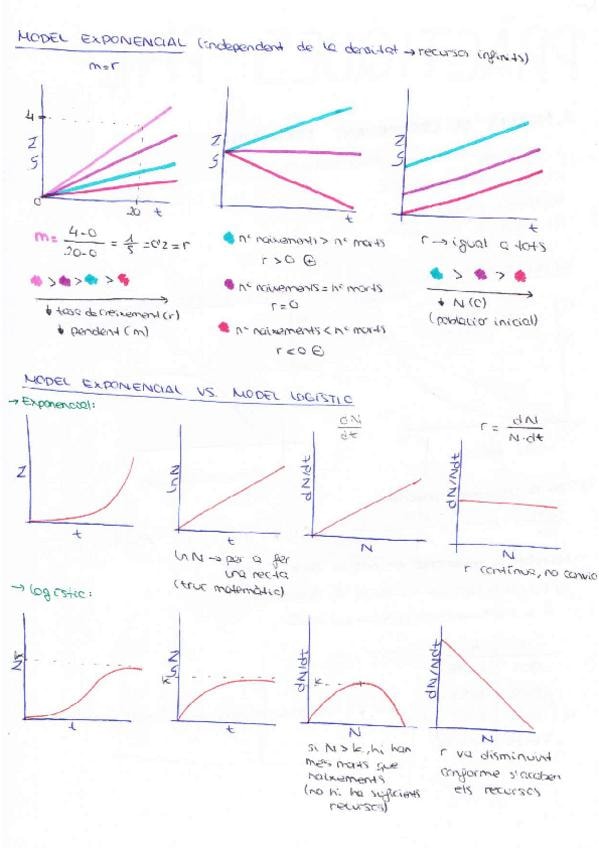 MODEL EXPONENCIAL (independent de la densitat → recursos infinits)
m=r
4
ln N
0
20
t
ln N
t
ln N
t
m = 4-0 / 20-0 = 1/5 = 0'2 = r
> > >
↓ tasa de creixement (r)
↓ pendent (m)
nº naixements > nº morts
r > 0 ⊕
nº naixements = nº morts
r = 0
nº naixements < nº morts
r < 0 ⊖
r → igual a tots
> >
↓ N(0)
(població inicial)
MODEL EXPONENCIAL VS. MODEL LOGÍSTIC
→ Exponencial:
N
t
ln N
t
dN/dt
dN/dt
N
r = dN / N·dt
dN/Ndt
N
ln N → per a fer
una recta
(truc matemàtic)
r contínua, no canvia
→ Logístic:
K
N
t
K
ln N
t
dN/dt
K
N
dN/Ndt
N
si N > K, hi han
més morts que
naixements
(no hi ha suficients
recursos)
r va disminuint
conforme s'acaben
els recursos